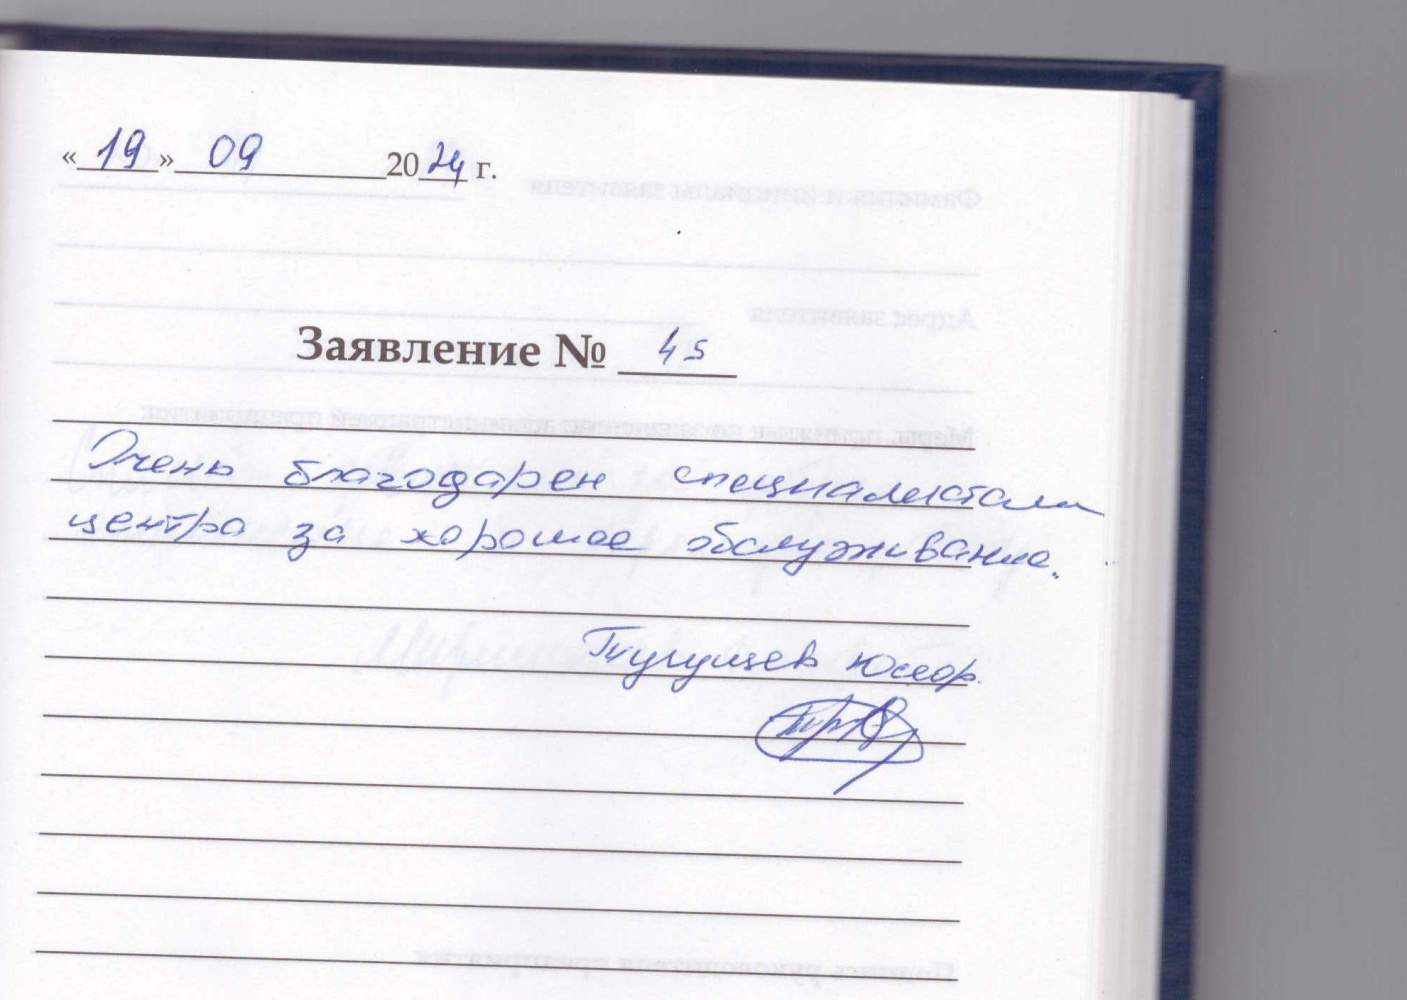 «19» 09 2024 г.
Заявление № 45
Очень благодарен специалистам
центра за хорошее обслуживание.